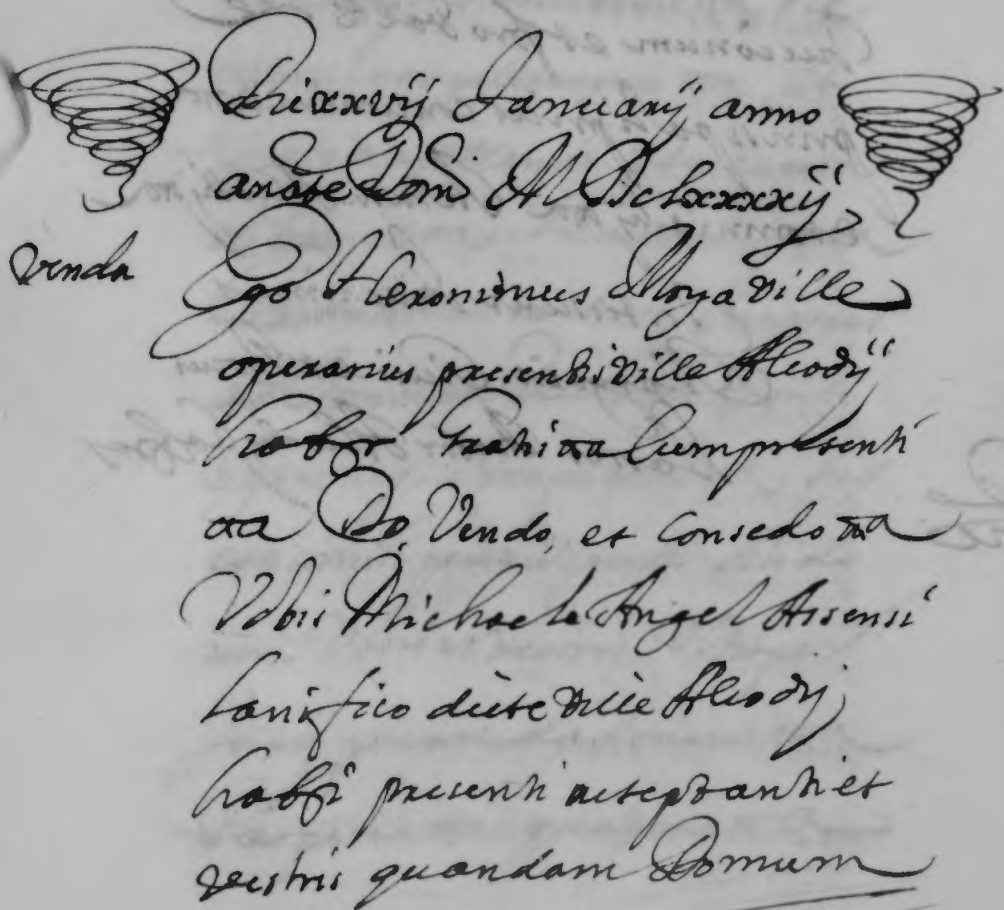 Die xxvij Januarij anno
a natte Dom M Dclxxxxij
Venda
Ego Heronimus Moya ville
operarius presentis ville Alcodij
habr Gratis &a Cum presenti
&a Do, Vendo, et Consedo &a
Vobis Michaele Angel Assensi
Lanifico dicte ville Alcodij
habri presenti acseptanti et
vestris quandam Domum